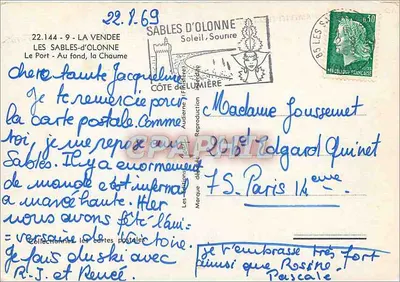 22.8.69
22.144 - 9 - LA VENDEE
LES SABLES-d'OLONNE
Le Port - Au fond, la Chaume
SABLES D'OLONNE
Soleil, Sourire
CÔTE de LUMIÈRE
0,30
REPUBLIQUE FRANÇAISE
85 LES S
chere tante Jacqueline
Je te remercie pour
la carte postale. Comme
toi, je me repose aux
Sables. Il y a enormement
de monde c'est infernal
a marée haute. Hier
nous avons fêté l'anni-
versaire de Victoire.
Je fais du ski avec
R.J. et Renée.
Madame Joussemet
Bd Edgard Quinet
75 Paris 14eme
je t'embrasse très fort
ainsi que Rosine.
Pascale
CPARAMA